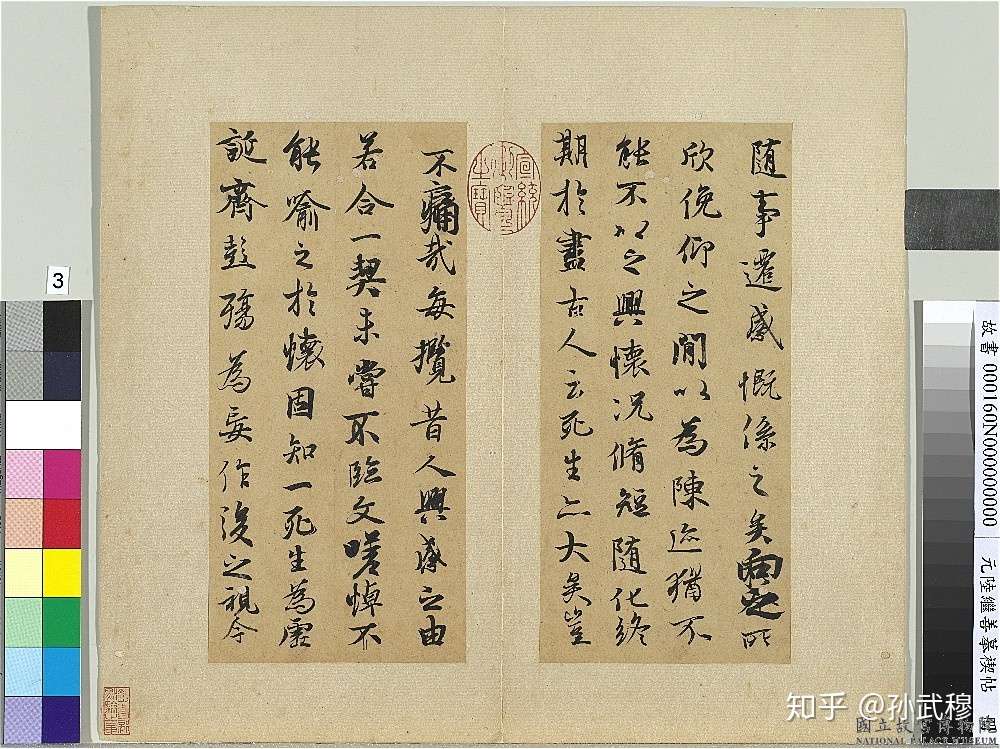 随事遷感慨係之矣向之所
欣俛仰之閒以為陳迹猶不
能不以之興懷况脩短随化終
期於盡古人云死生亦大矣豈
不痛哉每攬昔人興感之由
若合一契未嘗不臨文嗟悼不
能喻之於懷固知一死生為虛
誕齊彭殤為妄作後之視今
宣統
御覽
之寶
3
故書 000160N000000000
元陸繼善摹禊帖
知乎 @孫武穆
國立故宮博物院
NATIONAL PALACE MUSEUM